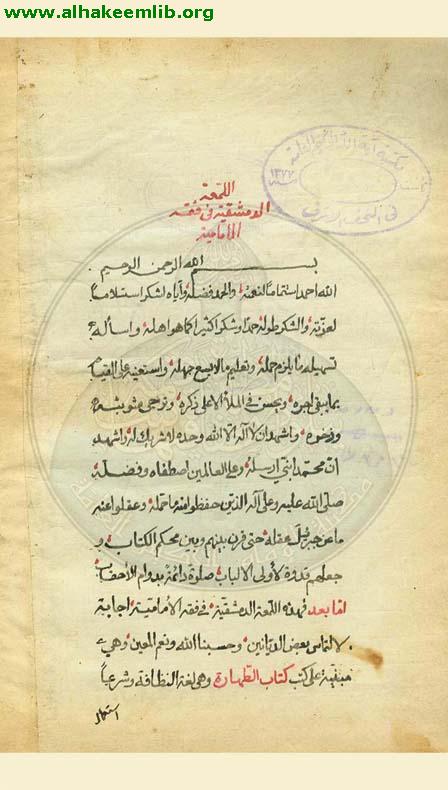 www.alhakeemlib.org
اللمعة
الدمشقية في فقه
الامامية
بسم الله الرحمن الرحيم
الله احمد استتماما لنعمته والحمد فضله واياه اشكر استسلاما
لعزته والشكر طوله حمدا وشكرا كثيرا كما هو اهله واساله
تسهيل ما يلزم حمله وتعليم ما لا يسع جهله واستعينه على القيام
بما يبقى اجره ويحسن في الملأ الاعلى ذكره وترجى مثوبته
وذخره واشهد ان لا اله الا الله وحده لا شريك له واشهد
ان محمدا نبي ارسله وعلى العالمين اصطفاه وفضله
صلى الله عليه وعلى آله الذين حفظوا ما حمله وعقلوا عنه
ما عن جبرئيل عقله حتى قرن بينهم وبين محكم الكتاب و
جعلهم قدوة لأولى الالباب صلوة دائمة بدوام الأحقاب
اما بعد فهذه اللمعة الدمشقية في فقه الامامية اجابة
لالتماس بعض الديانين وحسبنا الله ونعم المعين وهي
مبنية على كتب كتاب الطهارة وهي لغة النظافة وشرعا
استعمال
مكتبة
١٣٧٧
في النجف الاشرف